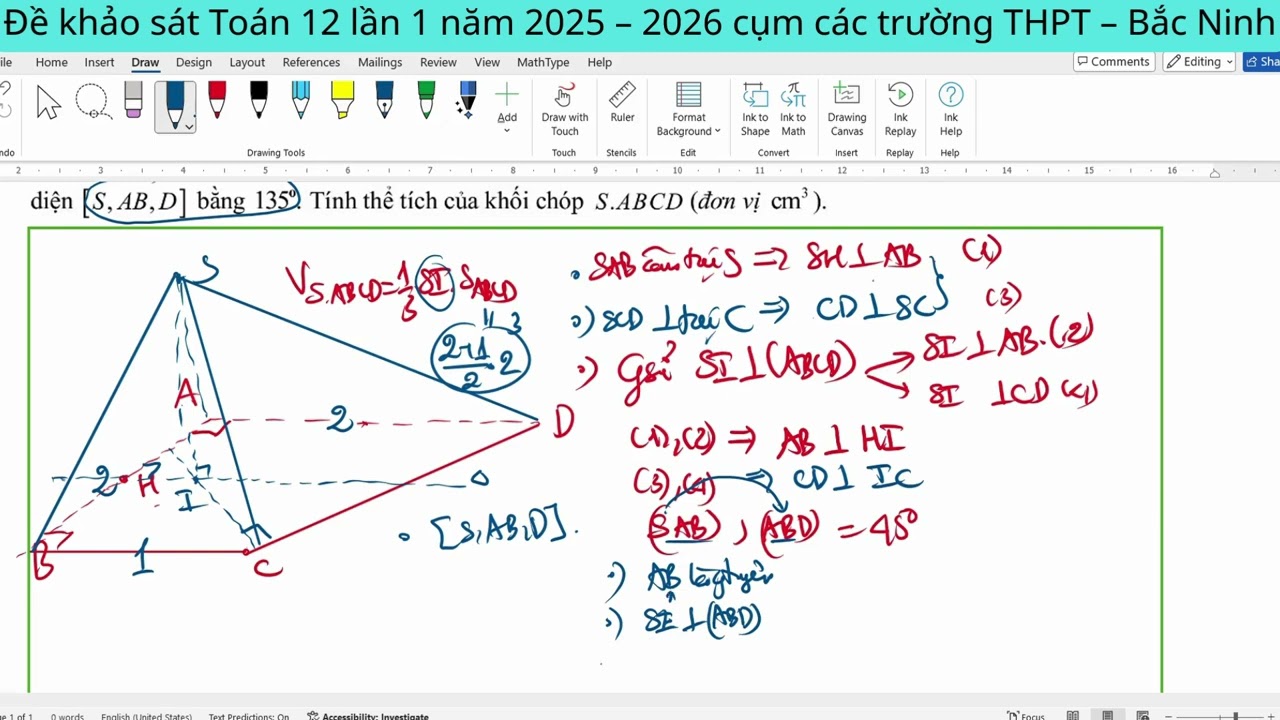 Đề khảo sát Toán 12 lần 1 năm 2025 – 2026 cụm các trường THPT – Bắc Ninh
ile Home Insert Draw Design Layout References Mailings Review View MathType Help Comments Editing Sha
Add Draw with Touch Ruler Format Background Ink to Shape Ink to Math Drawing Canvas Ink Replay Ink Help
ndo Drawing Tools Touch Stencils Edit Convert Insert Replay Help
2 3 4 5 6 7 8 9 10 11 12 13 14 15 16
diện [S, AB, D] bằng 135⁰. Tính thể tích của khối chóp S.ABCD (đơn vị cm³).
S
V S.ABCD = 1/3 SI. SABCD
3
(2+1)/2 . 2
A
2
D
2 H I
B
1
C
• [S, AB, D].
• SAB cân tại S => SH ⊥ AB (1)
•) SCD ⊥ tại C => CD ⊥ SC (3)
•) Gọi SI ⊥ (ABCD)
SI ⊥ AB. (2)
SI ⊥ CD (4)
(1), (2) => AB ⊥ HI
(3), (4) => CD ⊥ IC
(SAB), (ABD) = 45⁰
•) AB
•) SI ⊥ (ABD)
Page 1 of 1 0 words English (United States) Text Predictions: On Accessibility: Investigate Focus